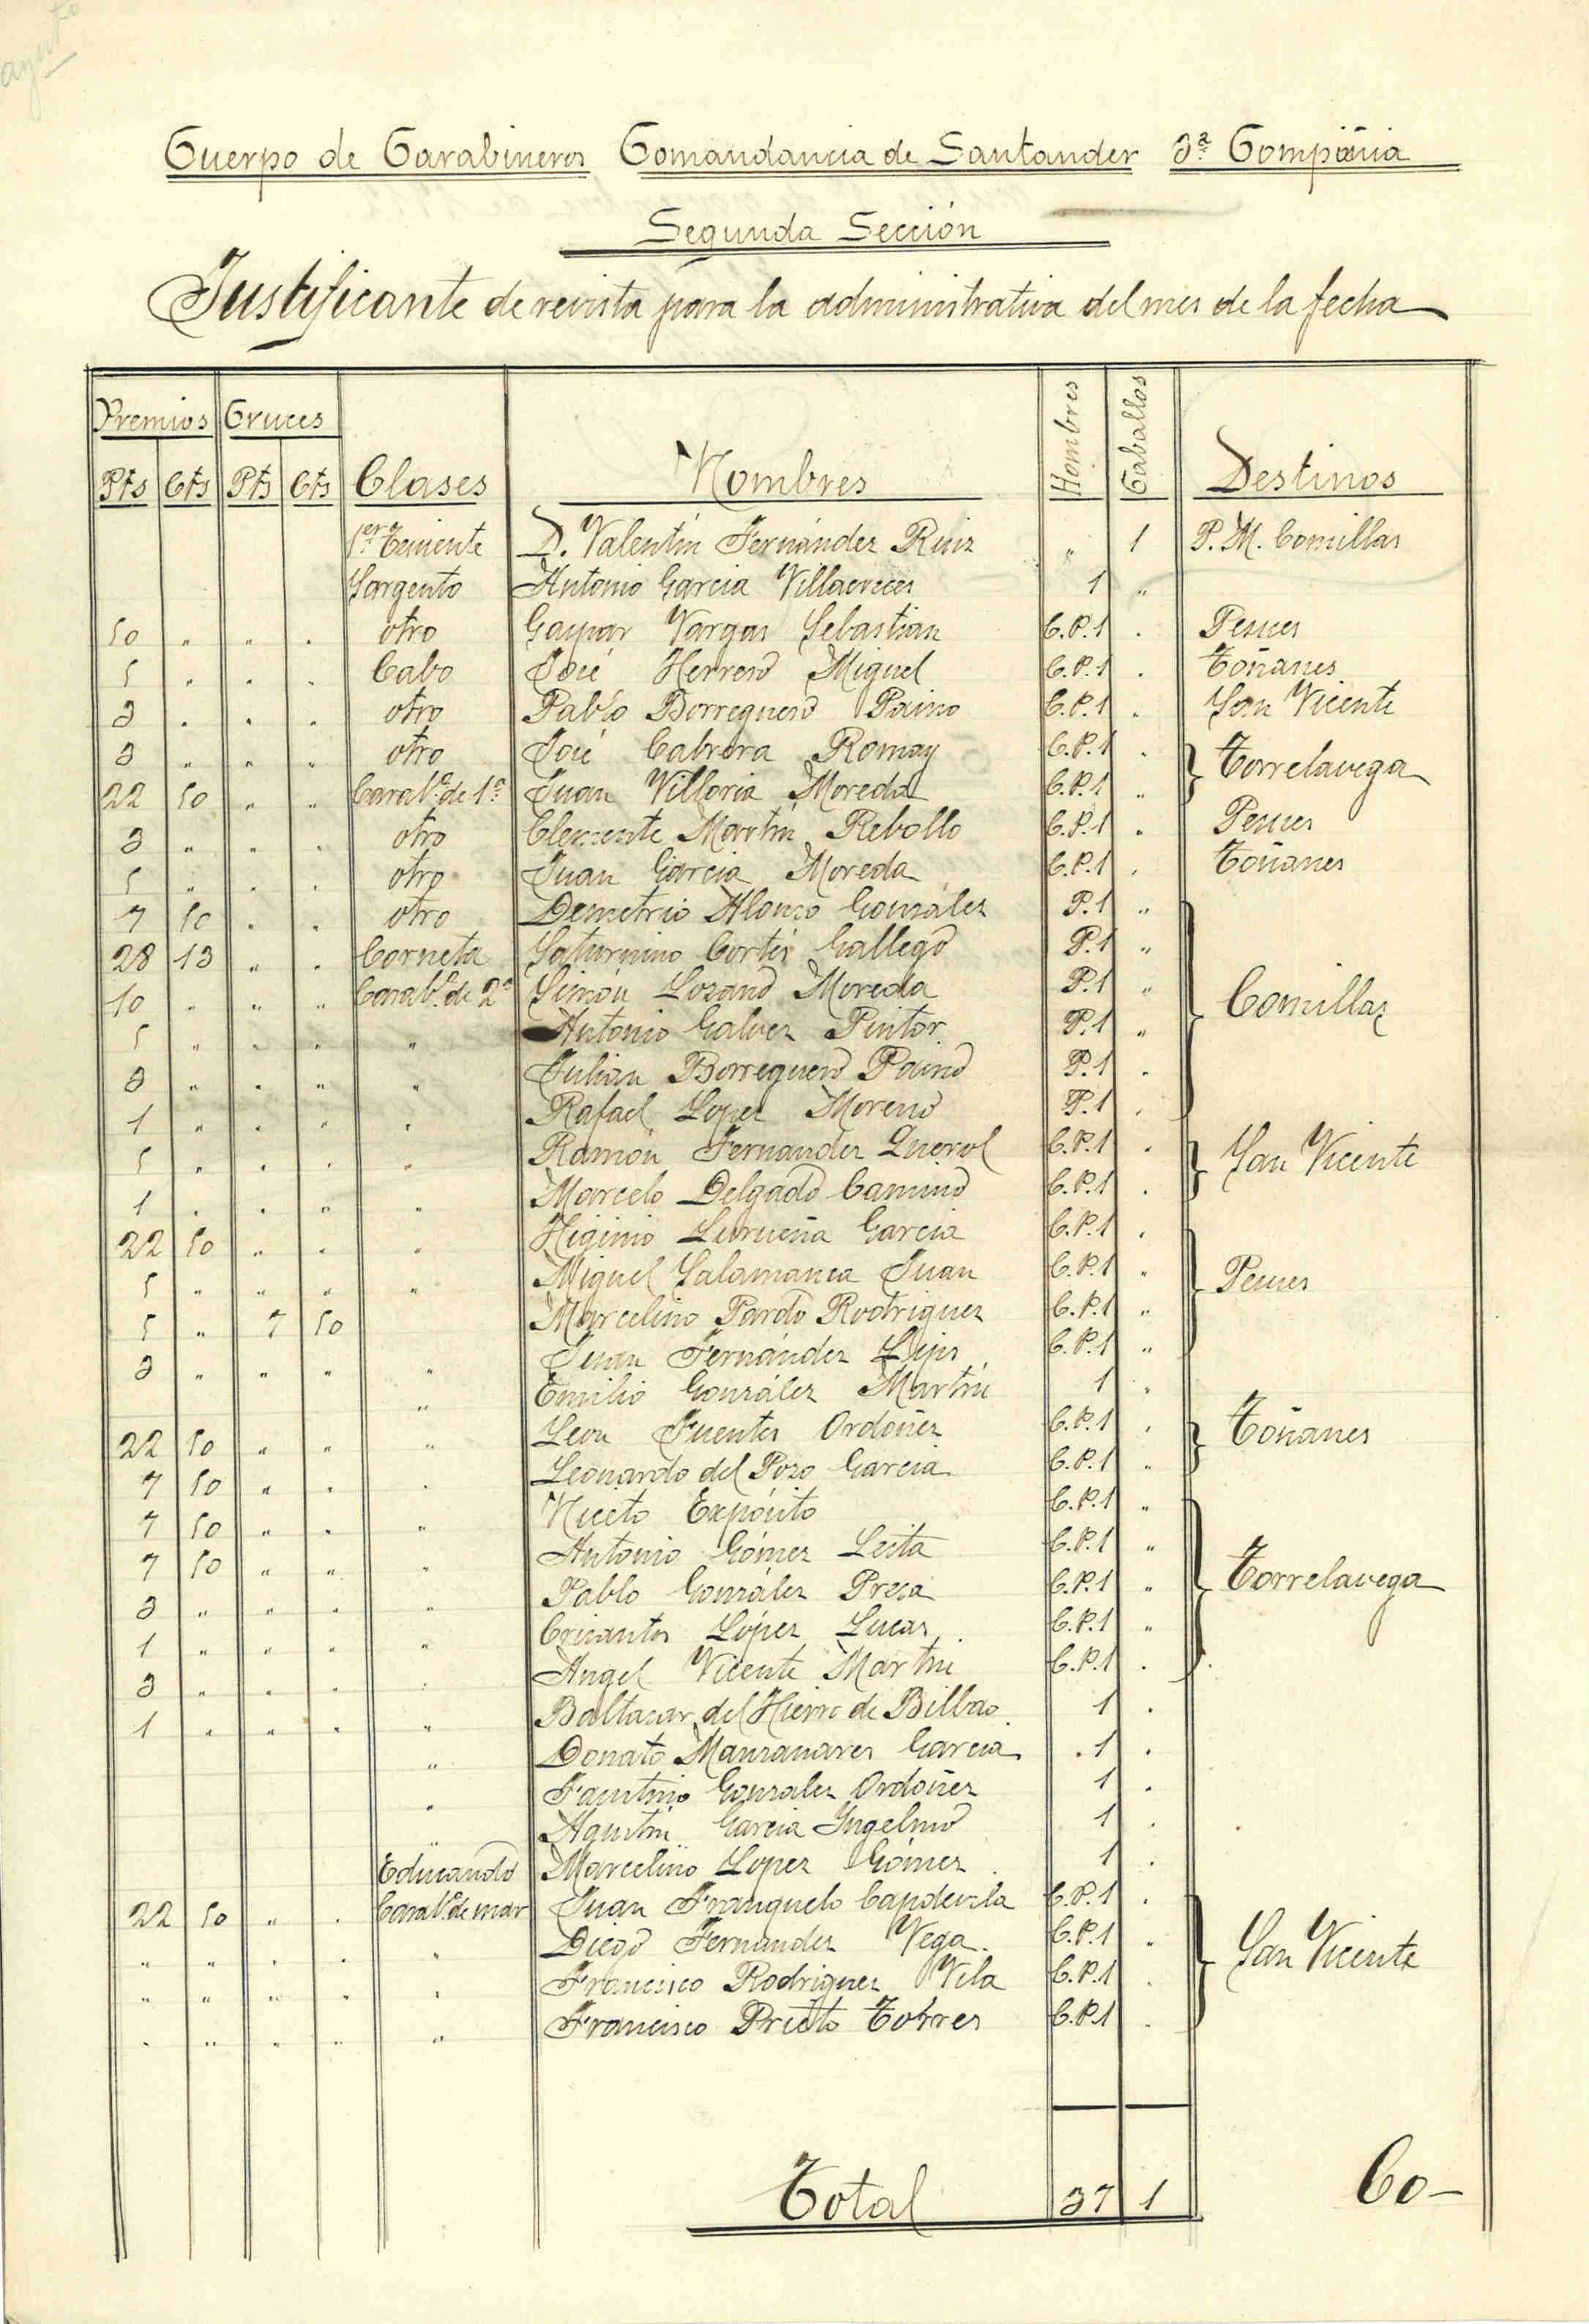 ayunto
Cuerpo de Carabineros Comandancia de Santander 3ª Compañia
Segunda Sección
Justificante de revista para la administrativa del mes de la fecha
Premios Cruces Clases Nombres Hombres Caballos Destinos
Pts Cts Pts Cts
1er Teniente D. Valentín Fernández Ruiz " 1 P. M. Comillas
Sargento Antonio Garcia Villacreces 1 "
10 " " " otro Gaspar Vargas Sebastian C.P.1 " Pesues
5 " " " Cabo José Herrero Miguel C.P.1 " Toñanes
3 " " " otro Pablo Borreguero Paino C.P.1 " San Vicente
3 " " " otro José Cabrera Romay C.P.1 "
22 50 " " Carab.º de 1ª Juan Villoria Moreda C.P.1 " Torrelavega
3 " " " otro Clemente Martín Rebollo C.P.1 " Pesues
5 " " " otro Juan Garcia Moreda C.P.1 " Toñanes
7 50 " " otro Demetrio Alonso González P.1 "
28 13 " " Corneta Saturnino Cortés Gallego P.1 "
10 " " " Carab.º de 2ª Simón Lozano Moreda P.1 " Comillas
5 " " " " Antonio Galvez Pintor P.1 "
3 " " " " Julian Borreguero Paino P.1 "
1 " " " " Rafael Lopez Moreno P.1 "
5 " " " " Ramón Fernandez Querol C.P.1 " San Vicente
1 " " " " Marcelo Delgado Camino C.P.1 "
22 50 " " " Higinio Lurueña Garcia C.P.1 "
5 " " " " Miguel Salamanca Juan C.P.1 " Pesues
5 " 7 50 Marcelino Pardo Rodriguez C.P.1 "
3 " " " " Juan Fernández C.P.1 "
" Emilio González Martín 1 "
22 50 " " " Leon Fuentes Ordoñez C.P.1 " Toñanes
7 50 " " " Leonardo del Pozo Garcia C.P.1 "
7 50 " " " Niceto Expósito C.P.1 "
7 50 " " " Antonio Gómez Leita C.P.1 "
3 " " " " Pablo González Presa C.P.1 " Torrelavega
1 " " " " Crisantos López Lucas C.P.1 "
3 " " " " Angel Vicente Martín C.P.1 "
1 " " " " Baltasar del Hierro de Bilbao 1 "
" Donato Manzanares Garcia 1 "
" Faustino Gonzalez Ordoñez 1 "
" Agustín Garcia Ingelmo 1 "
Educando Marcelino Lopez Gómez 1 "
22 50 " " Carab.º de mar Juan Franquelo Capdevila C.P.1 "
" " " " " Diego Fernandez Vega C.P.1 " San Vicente
" " " " " Francisco Rodriguez Vila C.P.1 "
" " " " " Francisco Prieto Torres C.P.1 "
Total 37 1
Co-